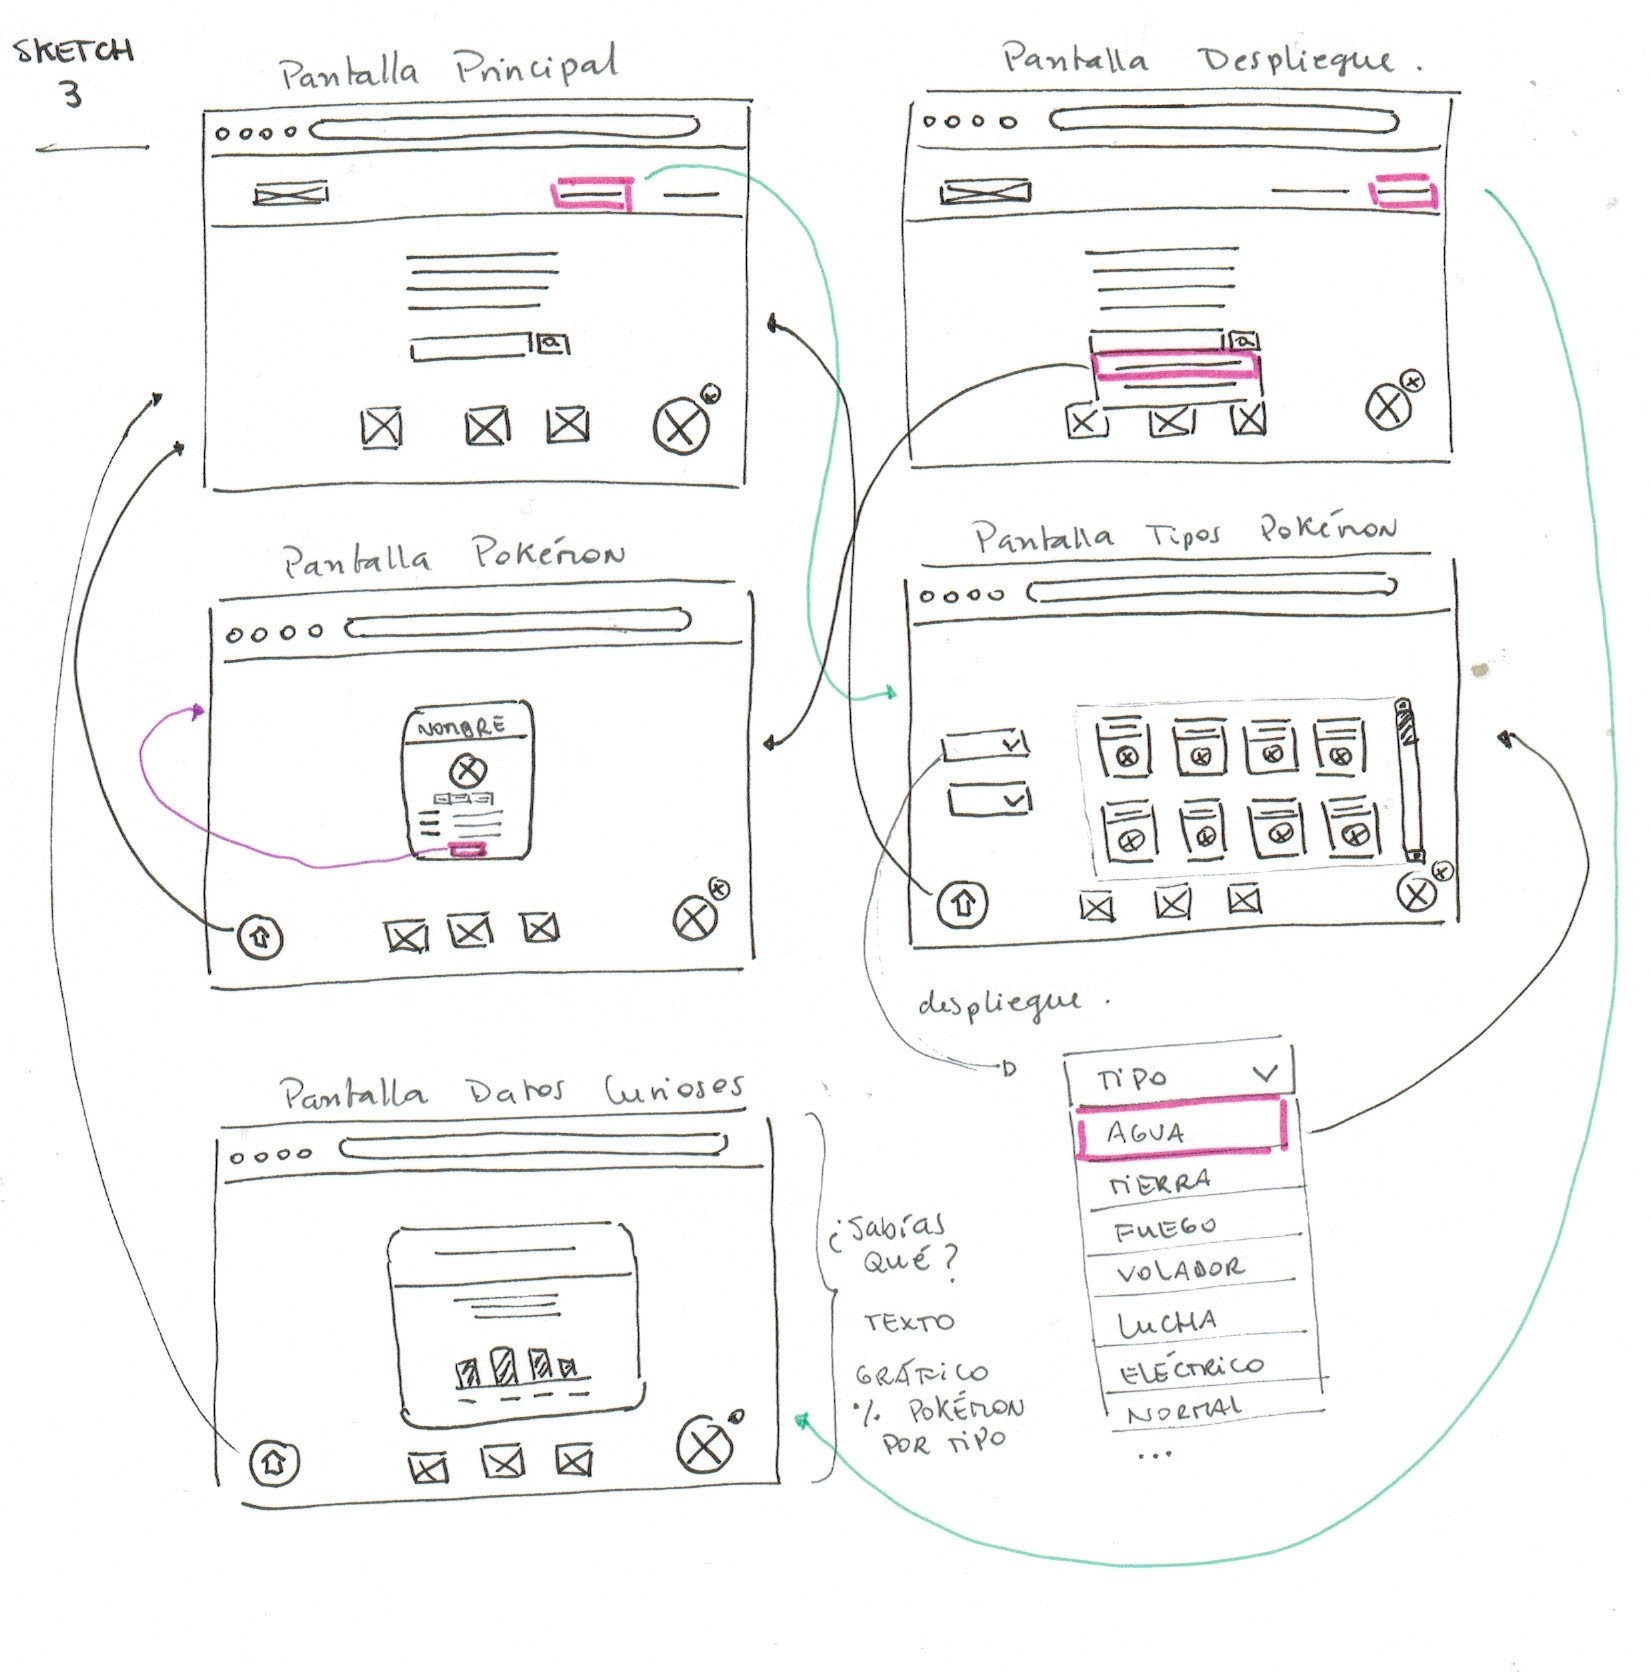 SKETCH
3
Pantalla Principal
Pantalla Despliegue.
Pantalla Pokémon
NOMBRE
Pantalla Tipos Pokémon
despliegue.
TIPO
AGUA
TIERRA
FUEGO
VOLADOR
LUCHA
ELÉCTRICO
NORMAL
...
Pantalla Datos Curioses
¿Sabías
qué?
TEXTO
GRÁFICO
% POKÉMON
POR TIPO